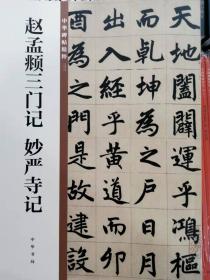 赵孟頫三门记 妙严寺记
中华书局
中华碑帖精粹
天地闔闢運乎鴻樞
而乾坤為之戶日月
出入經乎黃道而卯
酉為之門是故建設